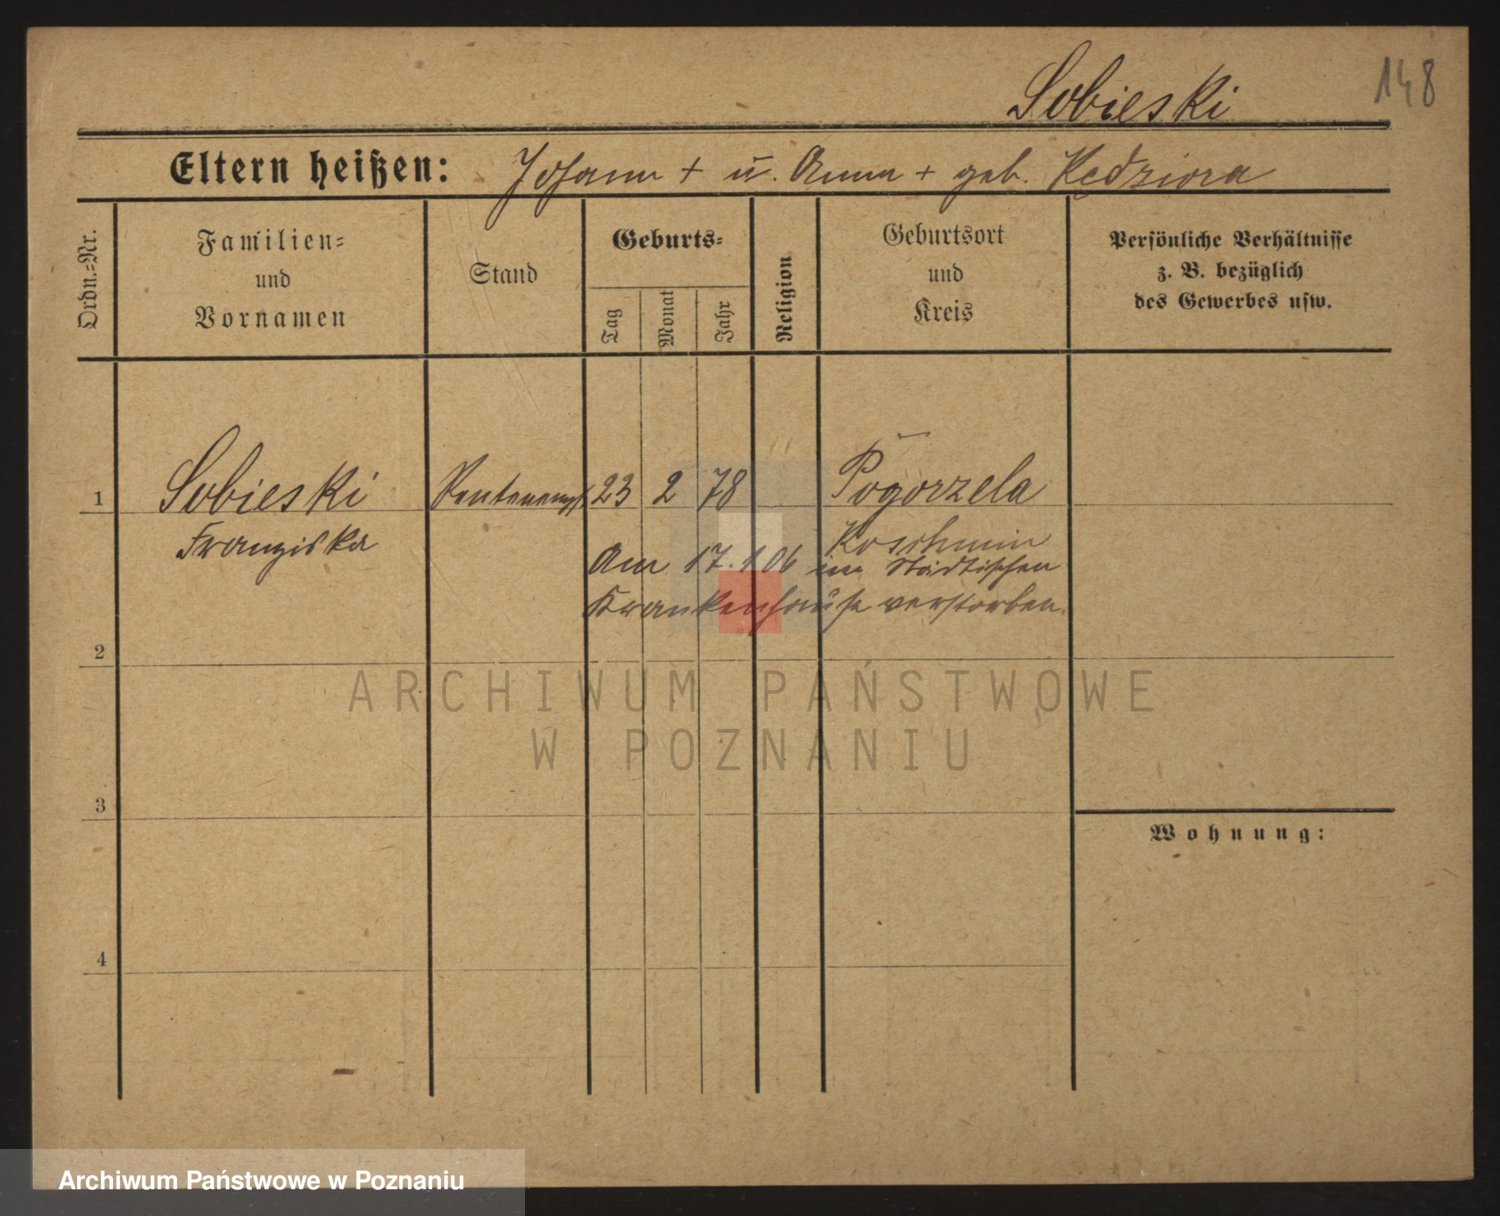 148
Sobieski
Eltern heißen: Johann + u. Anna + geb. Kędziora
Ordn.=Nr.
Familien=
und
Vornamen
Stand
Geburts=
Tag
Monat
Jahr
Religion
Geburtsort
und
Kreis
Persönliche Verhältnisse
z. B. bezüglich
des Gewerbes usw.
1 Sobieski Rentenempf. 23 2 78 Pogorzela
Franziska
Koschmin
Am 17.1.06 im Städtischen
Krankenhause verstorben.
2
ARCHIWUM PAŃSTWOWE
W POZNANIU
3
Wohnung:
4
Archiwum Państwowe w Poznaniu